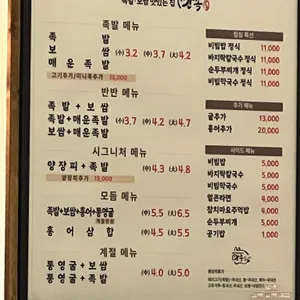 족발·보쌈 맛있는 집
족발 메뉴
족 발
보 쌈 (小) 3.2 (中) 3.7 (大) 4.2
매 운 족 발
고기추가/미니족추가 15,000
반반 메뉴
족 발 + 보 쌈
족발+매운족발 (小) 3.7 (中) 4.2 (大) 4.7
보쌈+매운족발
시그니처 메뉴
양장피+족발 (中) 4.3 (大) 4.8
양장피추가 15,000
모듬 메뉴
족발+보쌈+홍어+통영굴 (中) 5.5 (大) 6.5
홍 어 삼 합 (中) 4.5 (大) 5.5
계절 메뉴
통영굴+족발
통영굴+보쌈 (中) 4.0 (大) 5.0
점심 특선
비빔밥 정식 11,000
바지락칼국수 정식 11,000
순두부찌개 정식 11,000
비빔막국수 정식 11,000
추가 메뉴
굴추가 13,000
홍어추가 20,000
사이드 메뉴
비빔밥 5,000
바지락칼국수 5,000
비빔막국수 5,000
얼큰라면 4,000
참치마요주먹밥 4,000
순두부찌개 5,000
공기밥 1,000